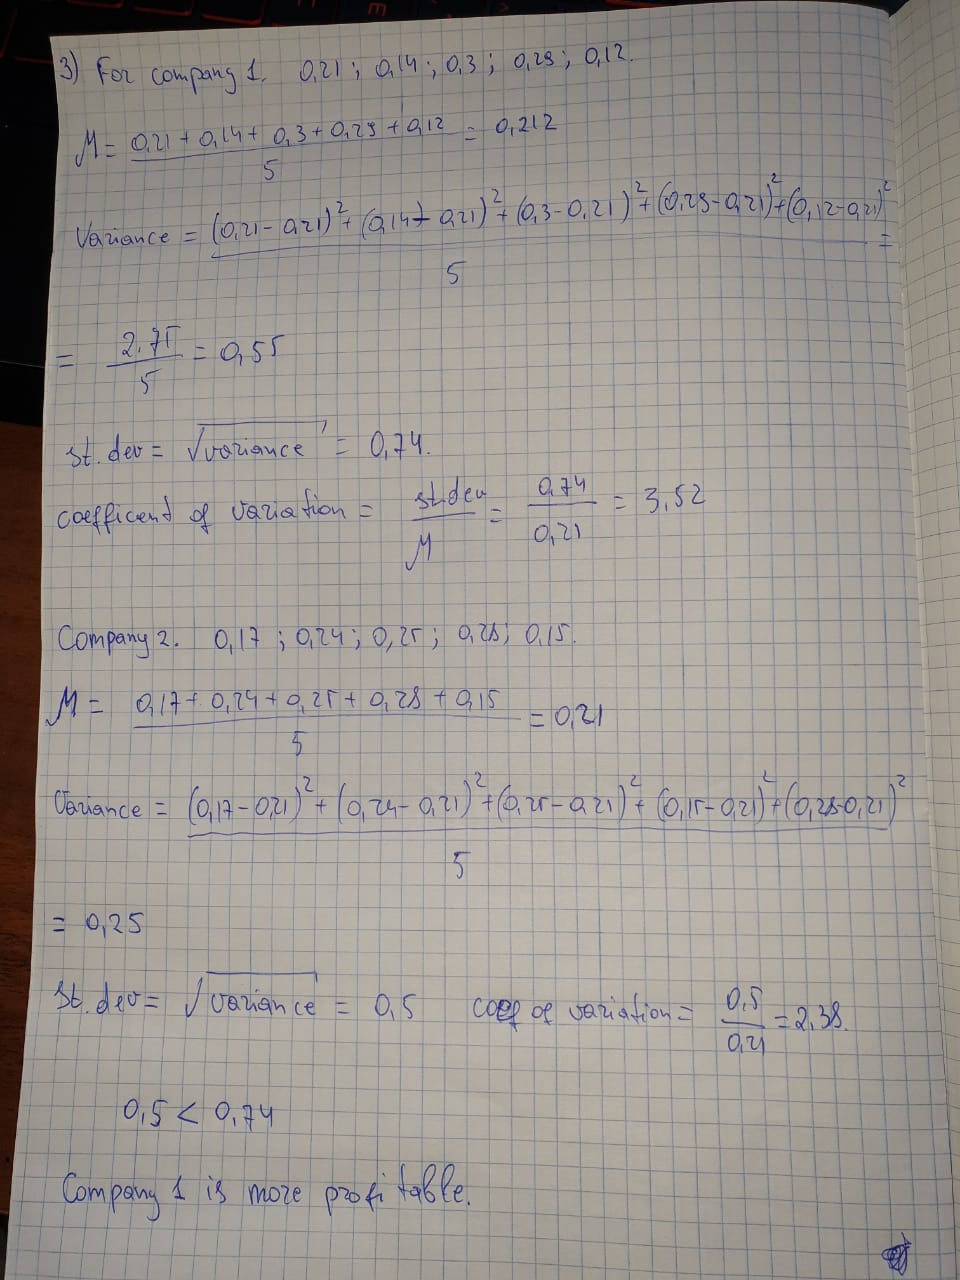 3) For company 1. 0,21; 0,14; 0,3; 0,29; 0,12.
M = (0,21 + 0,14 + 0,3 + 0,29 + 0,12) / 5 = 0,212
Variance = ((0,21 - 0,21)² + (0,14 - 0,21)² + (0,3 - 0,21)² + (0,29 - 0,21)² + (0,12 - 0,21)²) / 5 =
= 2.75 / 5 = 0,55
st. dev = √variance = 0,74.
coefficent of variation = st.dev / M = 0,74 / 0,21 = 3,52
Company 2. 0,17; 0,24; 0,25; 0,28; 0,15.
M = (0,17 + 0,24 + 0,25 + 0,28 + 0,15) / 5 = 0,21
Variance = ((0,17 - 0,21)² + (0,24 - 0,21)² + (0,25 - 0,21)² + (0,15 - 0,21)² + (0,28 - 0,21)²) / 5
= 0,25
st. dev = √variance = 0,5 coef of variation = 0,5 / 0,21 = 2,38.
0,5 < 0,74
Company 1 is more profitable.